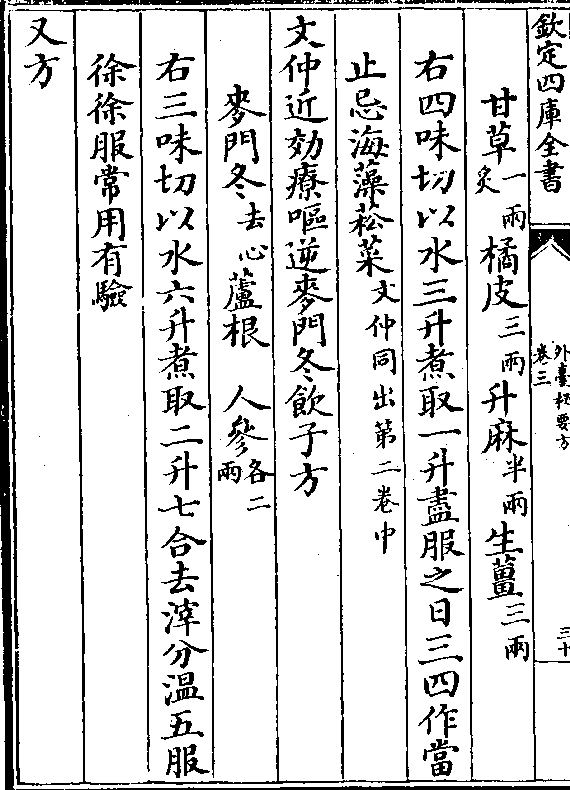 欽定四庫全書
外臺秘要方
卷三
三十
甘草一兩炙橘皮三兩升麻半兩生薑三兩
右四味切以水三升煮取一升盡服之日三四作當
止忌海藻菘菜文仲同出第二卷中
文仲近効療嘔逆麥門冬飲子方
麥門冬去心蘆根 人參各二兩
右三味切以水六升煮取二升七合去滓分温五服
徐徐服常用有驗
又方